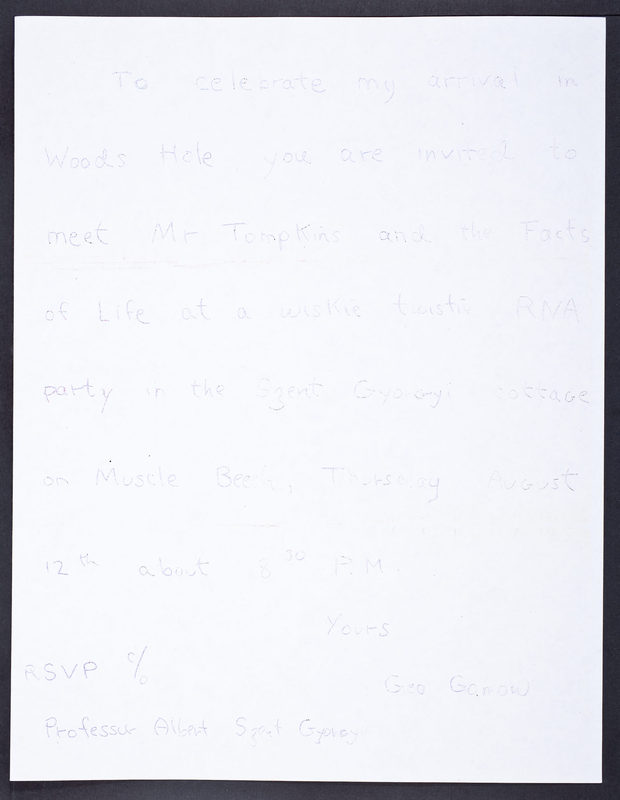 To celebrate my arrival in
Woods Hole you are invited to
meet Mr Tompkins and the Facts
of Life at a wiskie twistie RNA
party in the Szent Gyorgyi cottage
on Muscle Beech, Thursday August
12th about 8 30 P.M.
Yours
RSVP c/o
Geo Gamow
Professur Albert Szent Gyorgyi